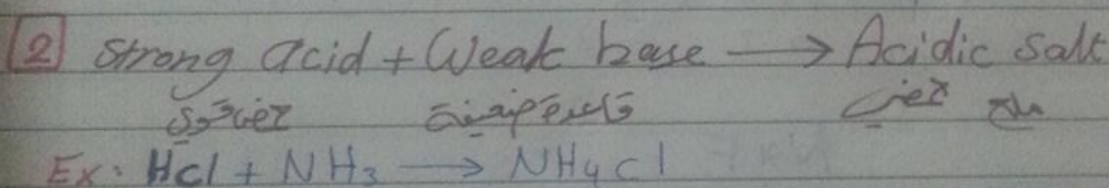 [2] Strong acid + Weak base → Acidic Salt
حمض قوي قاعدة ضعيفة ملح حمضي
Ex: HCl + NH3 → NH4Cl